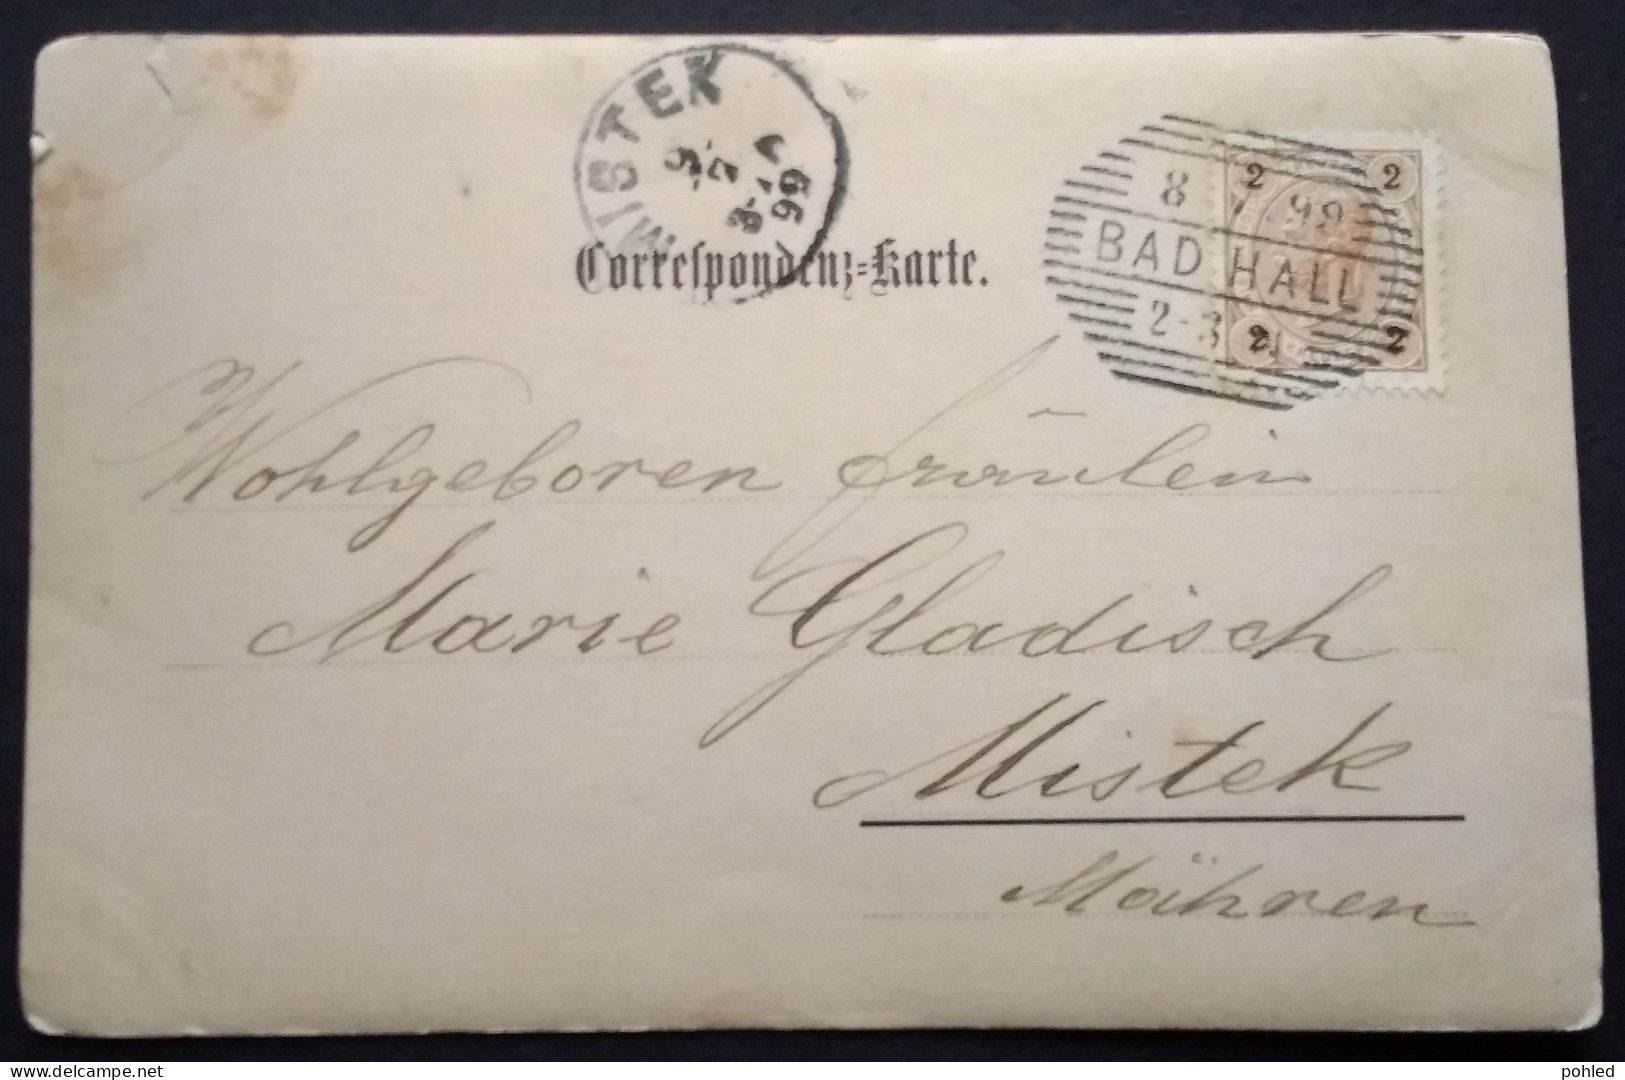 MISTEK
9. 7.
99
Correſpondenz=Karte.
8 7. 99
BAD HALL
2-3
2 2
2 2
Wohlgeboren Fräulein
Marie Gladisch
Mistek
Mähren
delcampe.net
pohled